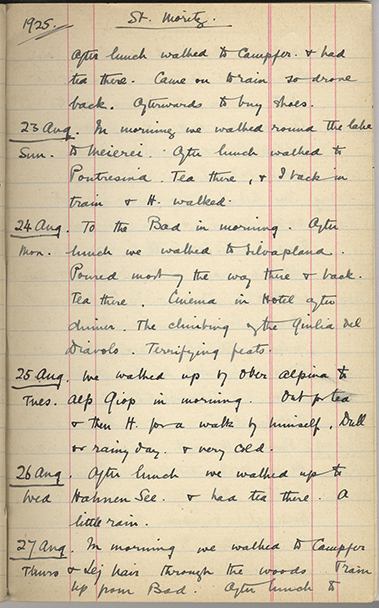 1925. St. Moritz.
After lunch walked to Campfer. & had
tea there. Came on to rain so drove
back. Afterwards to buy shoes.
23 Aug. In morning we walked round the lake
Sun. to Meierei. After lunch walked to
Pontresina. Tea there, & I back in
train & H. walked.
24 Aug. To the Bad in morning. After
Mon. lunch we walked to Silvaplana.
Poured most of the way there & back.
Tea there. Cinema in Hotel after
dinner. The climbing of the Guilia del
Diavolo. Terrifying feats.
25 Aug. We walked up by Ober Alpina to
Tues. Alp Giop in morning. Out for tea
& then H. for a walk by himself. Dull
or rainy day. & very cold.
26 Aug. After lunch we walked up to
Wed Hahnen See. & had tea there. A
little rain.
27 Aug. In morning we walked to Campfer
Thurs & Lej through the woods. Tram
up from Bad. After lunch to